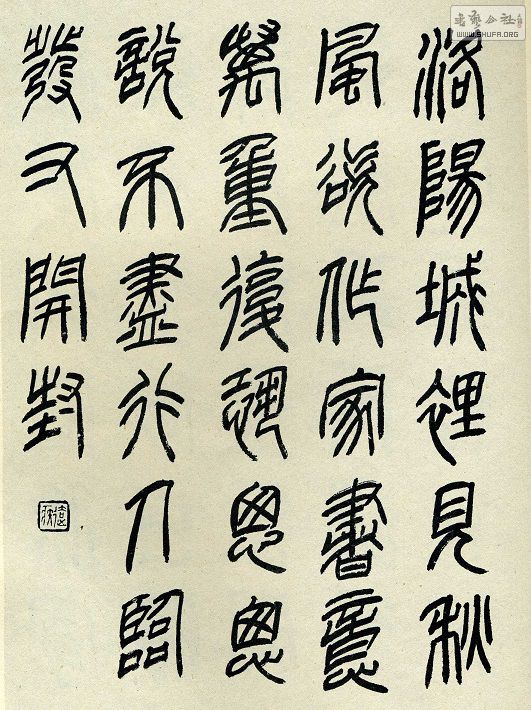 洛陽城裡見秋
風欲作家書意
萬重復恐悤悤
說不盡行人臨
發又開封
書藝公社
WWW.SHUFA.ORG